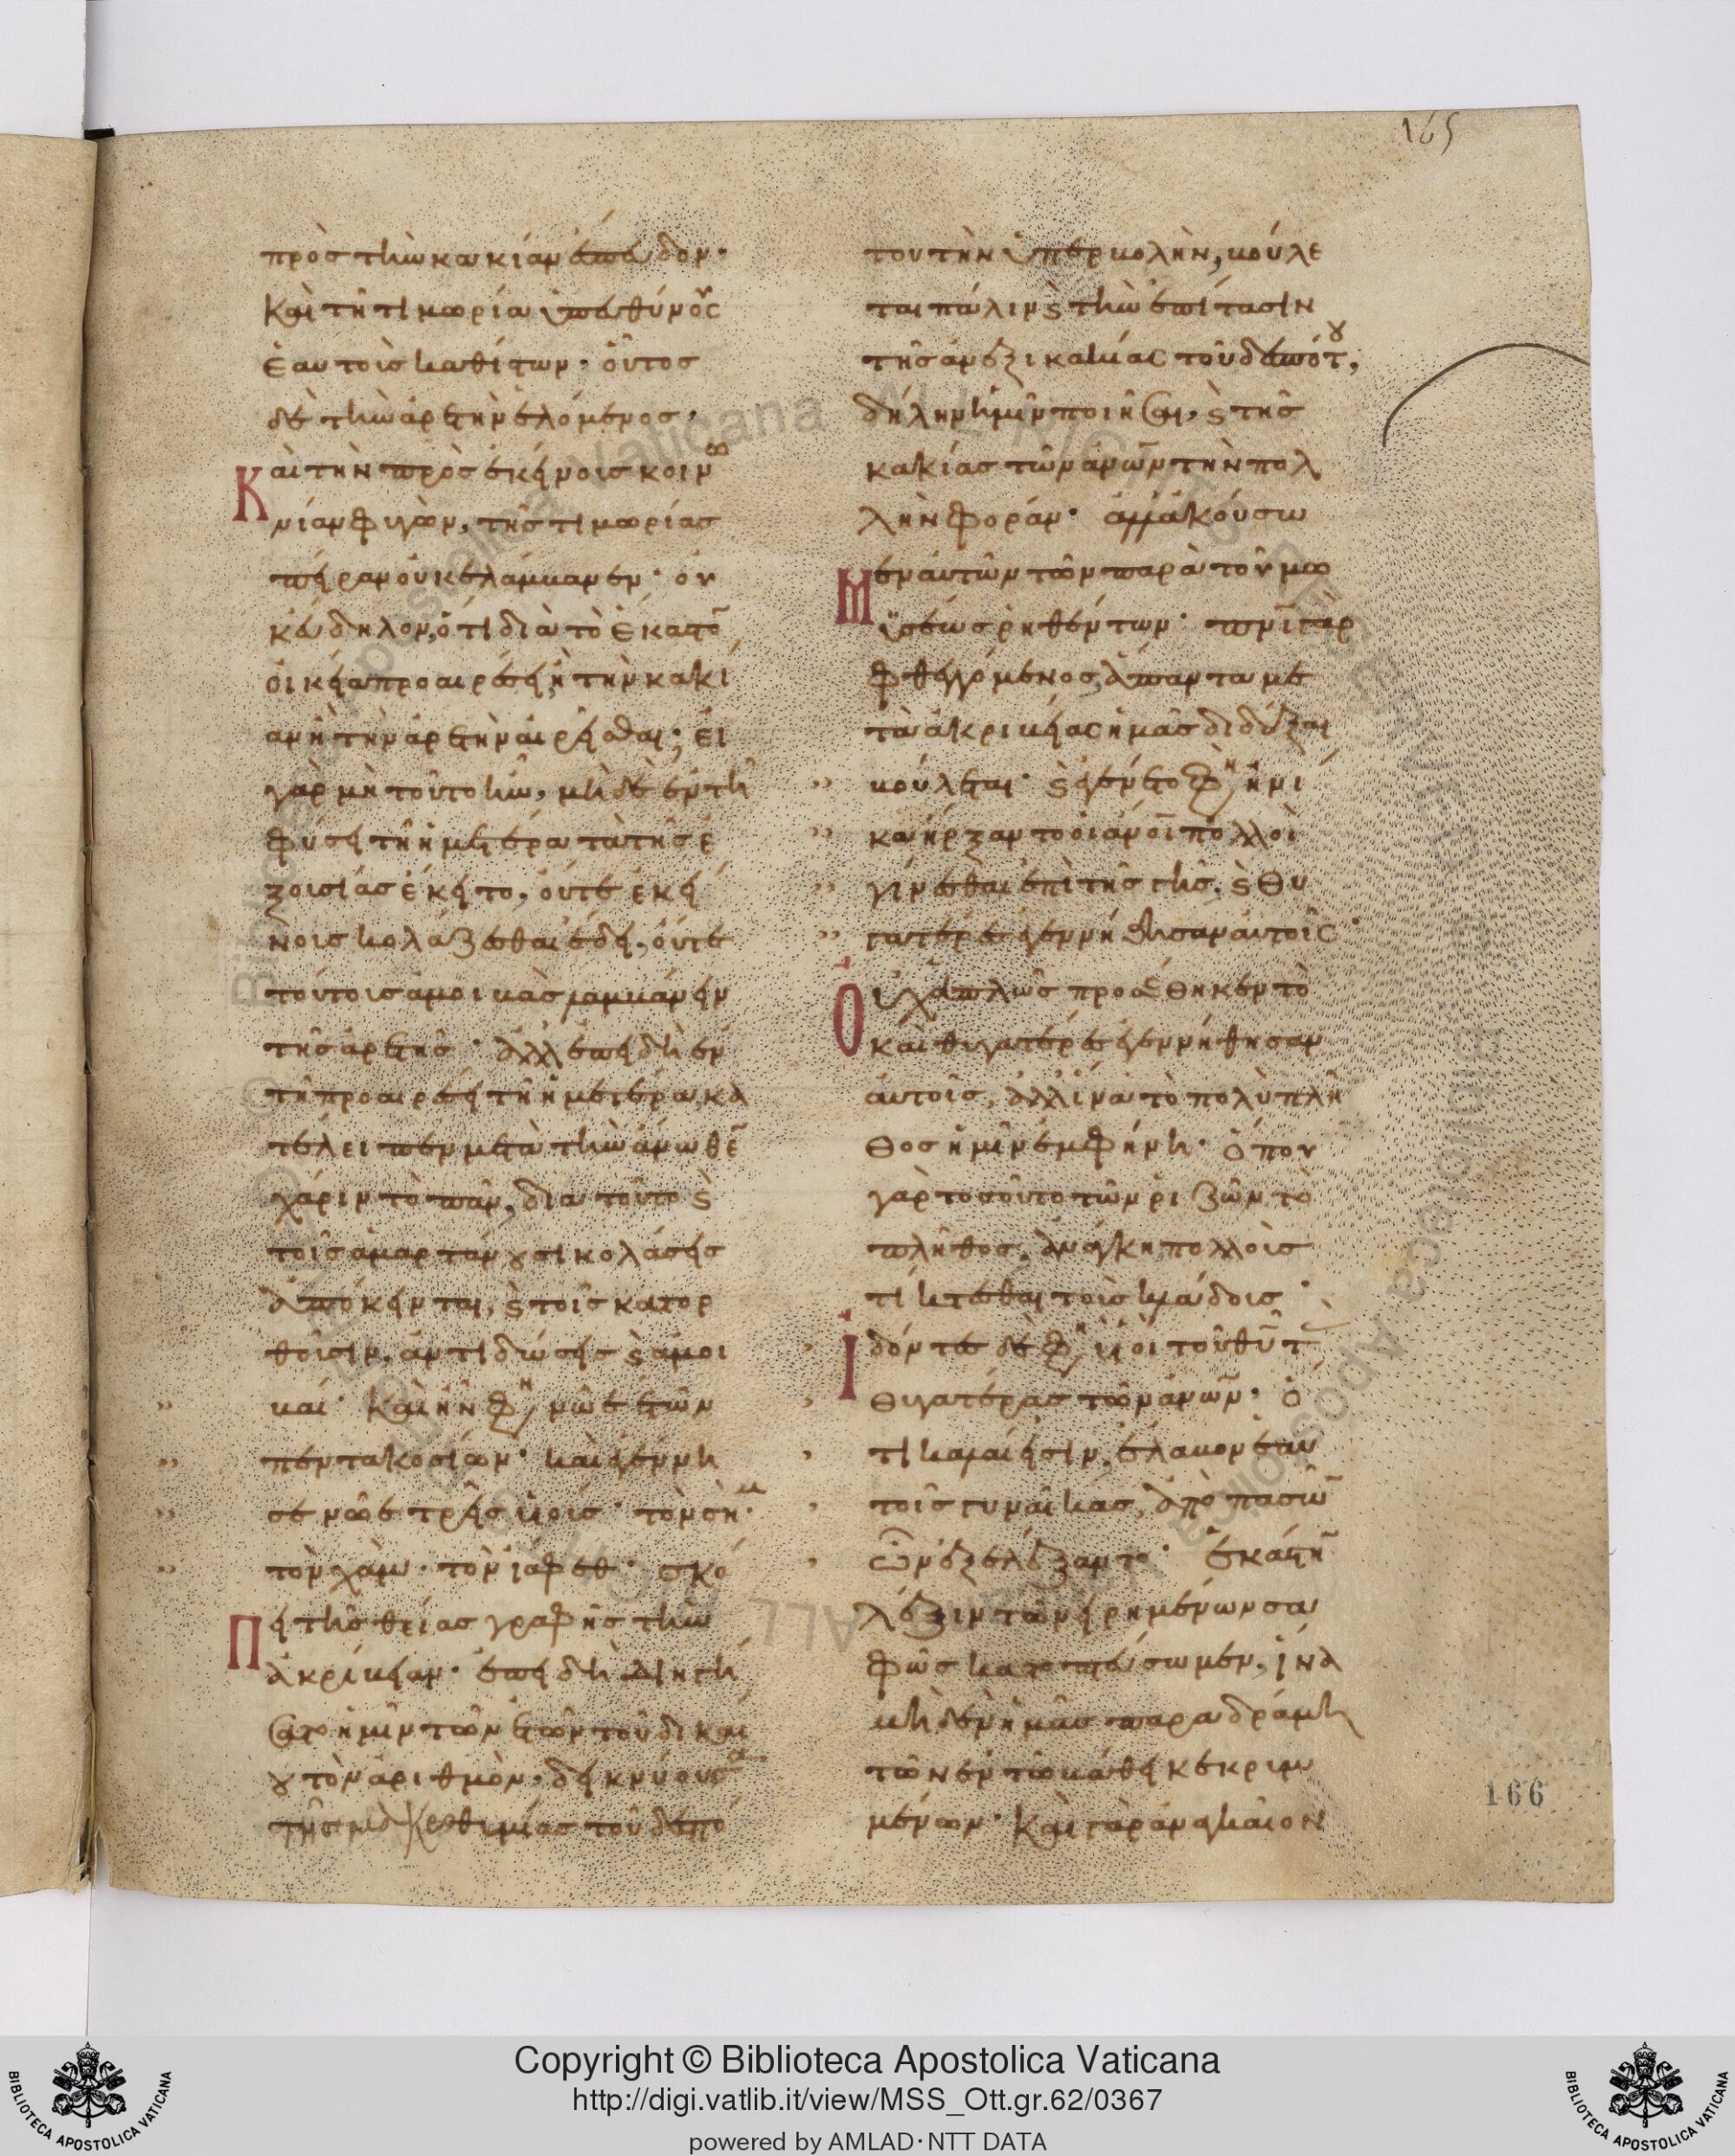 165
πρὸς τὴν κακίαν ἔσπευδον·
καὶ τῇ τιμωρία ὑπευθύνους
ἑαυτοὺς καθίστων· οὗτος
δὲ τὴν ἀρετὴν ἑλόμενος,
καὶ τὴν πρὸς ἐκείνοις κοινω
νίαν φυγὼν, τῆς τιμωρίας
πεῖραν οὐκ ἐλάμβανεν· οὐ
κεύδηλον, ὅτι διὰ τὸ ἕκαστο
οἰκεία προαιρέσει, ἢ τὴν κακί
αν ἢ τὴν ἀρετὴν αἱρεῖσθαι; εἰ
γὰρ μὴ τοῦτο ἦν, μὴ δὲ ἐν τῆ
φύσει τῆ ἡμετέρα τὰ τῆς ἐ
ξουσίας ἔκειτο, οὔτε ἐκεί
νους κολάζεσθαι ἔδει, οὔτε
τούτους ἀμοιβὰς λαμβάνειν
τῆς ἀρετῆς· ἀλλ' ἐπειδὴ ἐν
τῆ προαιρέσει τῆ ἡμετέρα κα
τέλειπεν μετὰ τὴν ἄνωθε
χάριν τὸ πᾶν, διὰ τοῦτο καὶ
τοῖς ἁμαρτάνουσι κολάσεις
ἀπόκεινται, καὶ τοῖς κατορ
θοῦσιν, ἀντιδώσεις καὶ ἀμοι
βαί· καὶ ἦν φη νῶε ἐτῶν
πεντακοσίων· καὶ ἐγέννη
σε νῶε τρεῖς υἱούς· τὸν σὴμ·
τὸν χάμ· τὸν ϊάφεθ· σκό
πει τῆς θείας γραφῆς τὴν
ἀκρίβειαν· ἐπειδὴ διηγή
σατο ἡμῖν τῶν ἐτῶν τοῦ δικαί
ου τὸν ἀριθμὸν, δεικνύουσα
τῆς μακροθυμίας τοῦ δεσπό
του τὴν ὑπερβολὴν, βούλε
ται πάλιν καὶ τὴν ἐπίτασιν
τῆς ἀνεξικακίας τοῦ δεσπότου,
δήλην ἡμῖν ποιῆσαι, καὶ τῆς
κακίας τῶν ἀνων τὴν πολ
λὴν φοράν· ἀλλ' ἀκούσω
μεν αὐτῶν τῶν παρὰ τοῦ μω
ϋσέως ῥηθέντων· πνι γὰρ
φθεγγόμενος, ἅπαντα με
τὰ ἀκριβείας ἡμᾶς διδάξαι
βούλεται· καὶ ἐγένετο φη ἡνί
κα ἤρξαντο οἱ ἀνοι πολλοὶ
γίνεσθαι ἐπὶ τῆς γῆς, καὶ θυ
γατέρες ἐγεννήθησαν αὐτοῖς·
οὐχ ἁπλῶς προσέθηκεν τὸ
καὶ θυγατέρες ἐγεννήθησαν
αὐτοῖς, ἀλλ' ἵνα τὸ πολὺ πλῆ
θος ἡμῖν ἐμφήνη· ὅπου
γὰρ τοσοῦτο τῶν ῥιζῶν τὸ
πλῆθος, ἀνάγκη πολλοὺς
τίκτεσθαι τοὺς κλάδους·
ἰδόντες δέ φη υἱοὶ τοῦ θυ τ
θυγατέρας τῶν ἀνων· ὅ
τι καλαί εἰσιν, ἔλαβον ἑαυ
τοῖς γυναῖκας, ἀπὸ πασῶ
ὧν ἐξελέξαντο· ἑκάστη
λέξιν τῶν εἰρημένων σα
φῶς κατοπτεύσωμεν, ἵνα
μηδὲν ἡμᾶς παραδράμη
τῶν ἐν τῶ βάθει κεκρυμ
μένων· καὶ γὰρ ἀναγκαῖον
166
Copyright © Biblioteca Apostolica Vaticana
http://digi.vatlib.it/view/MSS_Ott.gr.62/0367
powered by AMLAD·NTT DATA
BIBLIOTECA APOSTOLICA VATICANA
BIBLIOTECA APOSTOLICA VATICANA